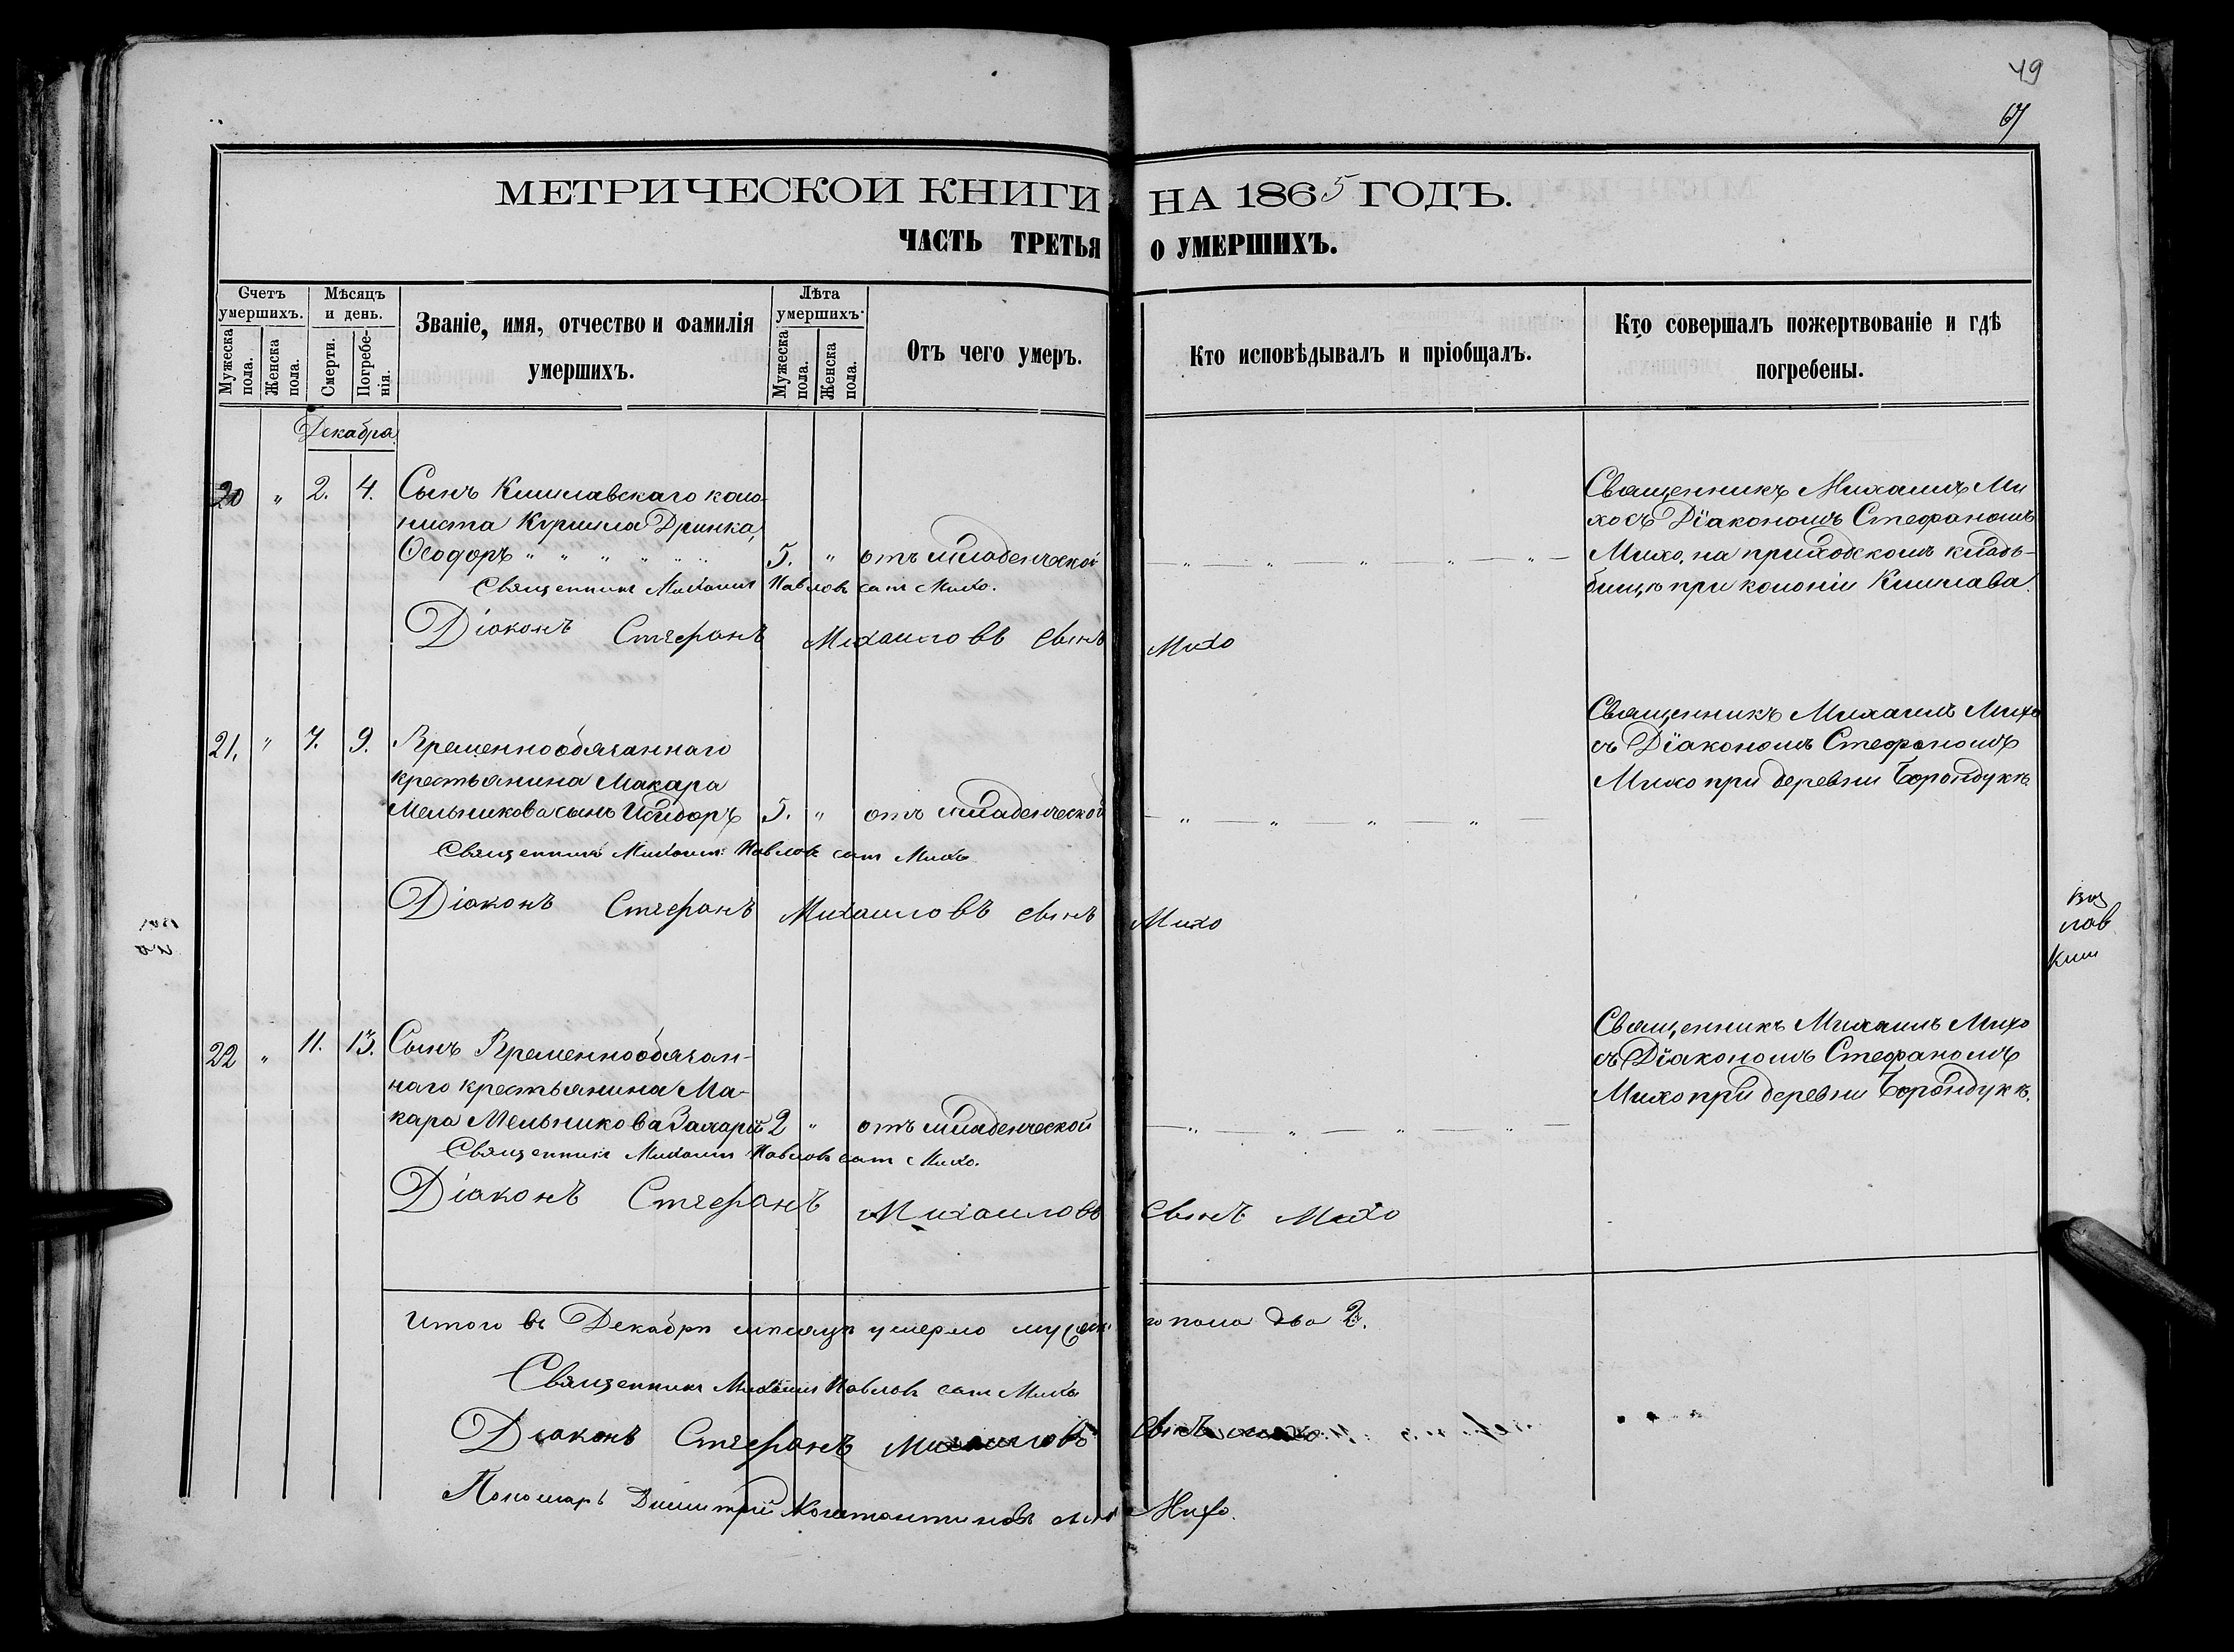 49
67
МЕТРИЧЕСКОЙ КНИГИ НА 1865 ГОДЪ.
ЧАСТЬ ТРЕТЬЯ О УМЕРШИХЪ.
Счетъ умершихъ.
Мужеска пола.
Женска пола.
Мѣсяцъ и день.
Смерти.
Погребенія.
Званіе, имя, отчество и фамилія
умершихъ.
Лѣта умершихъ.
Мужеска пола.
Женска пола.
Отъ чего умеръ.
Кто исповѣдывалъ и пріобщалъ.
Кто совершалъ пожертвованіе и гдѣ
погребены.
Декабря
20 " 2. 4. Сынъ Кишлавскаго коло-
ниста Курилла Дринка,
Ѳеодоръ " " " " " 5. " отъ младенческой
Священникъ Михаилъ Ми
хо съ Діакономъ Стефаномъ
Михо, на приходскомъ кладь-
бищѣ при колоніи Кишлава.
Священникъ Михаилъ Павловъ сынъ Михо.
Діаконъ Стефанъ Михаиловъ сынъ Михо
21. " 7. 9. Временнообязаннаго
крестьянина Макара
Мельникова сынъ Исидоръ 5. " отъ младенческой
Священникъ Михаилъ Михо
съ Діакономъ Стефаномъ
Михо при деревни Борондукѣ.
Священникъ Михаилъ Павловъ сынъ Михо
Діаконъ Стефанъ Михаиловъ сынъ Михо
пав
Киш
22 " 11. 13. Сынъ Временнообязан-
наго крестьянина Ма-
кара Мельникова Захарій 2 " отъ младенческой
Священникъ Михаилъ Михо
съ Діакономъ Стефаномъ
Михо при деревни Борондукѣ.
Священникъ Михаилъ Павловъ сынъ Михо.
Діаконъ Стефанъ Михаиловъ сынъ Михо
Итого въ Декабрѣ мѣсяцѣ умерло мужеск го пола два 2.
Священникъ Михаилъ Павловъ сынъ Михо
Діаконъ Стефанъ Михаиловъ сынъ Михо
Пономарь Димитрій Константиновъ сынъ Михо.